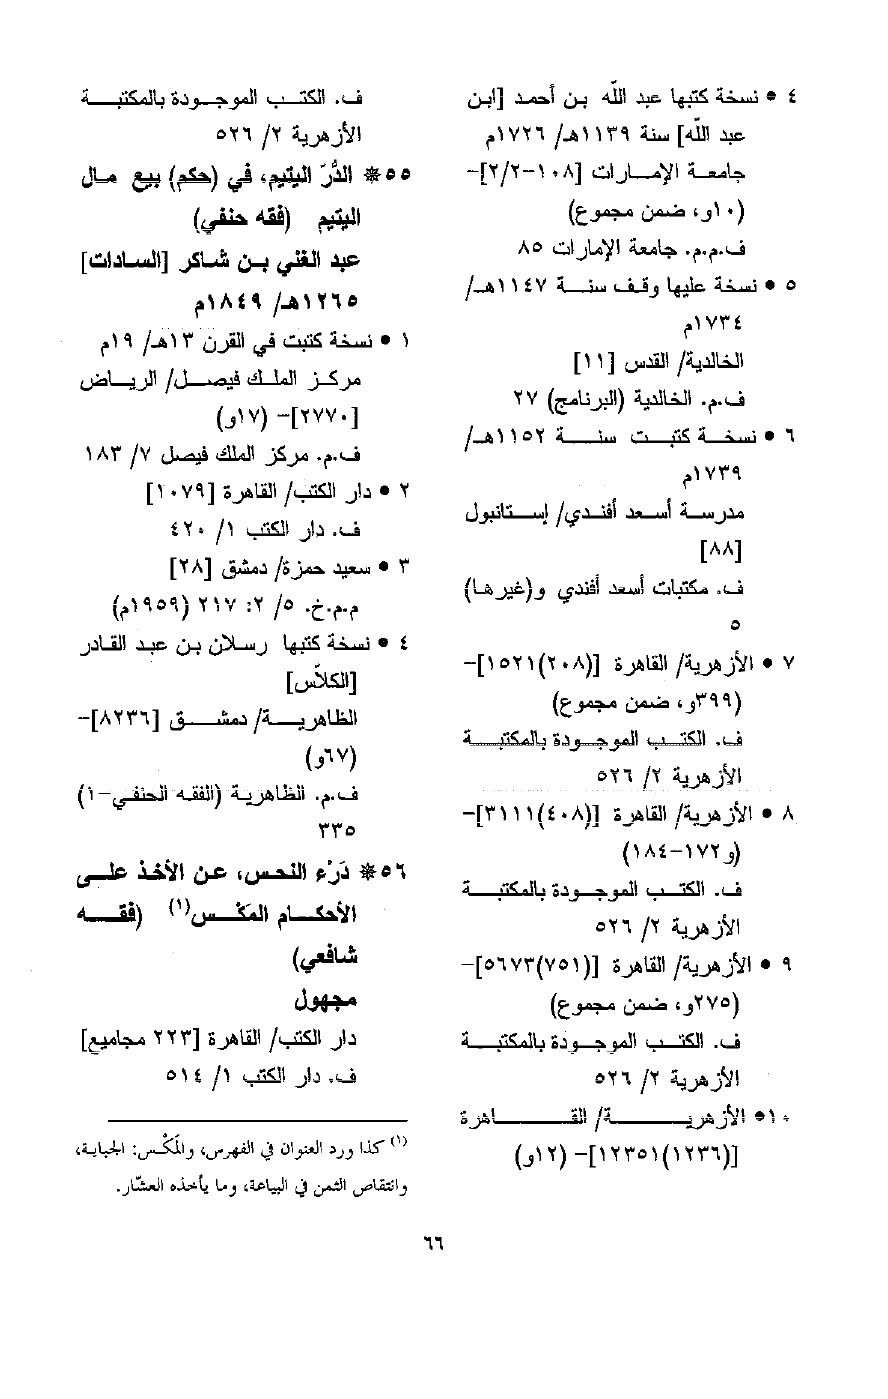 ٤ • نسخة كتبها عبد اللّه بن أحمد [ابن
عبد اللّه] سنة ١١٣٩هـ/ ١٧٢٦م
جامعة الإمارات [١٠٨-٢/٢]-
(١٠و، ضمن مجموع)
ف.م.م. جامعة الإمارات ٨٥
٥ • نسخة عليها وقف سنة ١١٤٧هـ/
١٧٣٤م
الخالدية/ القدس [١١]
ف.م. الخالدية (البرنامج) ٢٧
٦ • نسخة كتبت سنة ١١٥٢هـ/
١٧٣٩م
مدرسة أسعد أفندي/ إستانبول
[٨٨]
ف. مكتبات أسعد أفندي و(غيرها)
٥
٧ • الأزهرية/ القاهرة [(٢٠٨)١٥٢١]-
(٣٩٩و، ضمن مجموع)
ف. الكتب الموجودة بالمكتبة
الأزهرية ٢/ ٥٢٦
٨ • الأزهرية/ القاهرة [(٤٠٨)٣١١١]-
(و١٧٢-١٨٤)
ف. الكتب الموجودة بالمكتبة
الأزهرية ٢/ ٥٢٦
٩ • الأزهرية/ القاهرة [(٧٥١)٥٦٧٣]-
(٢٧٥و، ضمن مجموع)
ف. الكتب الموجودة بالمكتبة
الأزهرية ٢/ ٥٢٦
١٠• الأزهرية/ القاهرة
[(١٢٣٦)١٢٣٥١]- (١٢و)
ف. الكتب الموجودة بالمكتبة
الأزهرية ٢/ ٥٢٦
٥٥* الدُّرّ اليتيم، في (حكم) بيع مال
اليتيم (فقه حنفي)
عبد الغني بن شاكر [السادات]
١٢٦٥هـ/ ١٨٤٩م
١ • نسخة كتبت في القرن ١٣هـ/ ١٩م
مركز الملك فيصل/ الرياض
[٢٧٧٠]- (١٧و)
ف.م. مركز الملك فيصل ٧/ ١٨٣
٢ • دار الكتب/ القاهرة [١٠٧٩]
ف. دار الكتب ١/ ٤٢٠
٣ • سعيد حمزة/ دمشق [٢٨]
م.م.خ. ٥/ ٢: ٢١٧ (١٩٥٩م)
٤ • نسخة كتبها رسلان بن عبد القادر
[الكلاّس]
الظاهرية/ دمشق [٨٢٣٦]-
(٦٧و)
ف.م. الظاهرية (الفقه الحنفي-١)
٣٣٥
٥٦* دَرْء النحس، عن الأخذ على
الأحكام المَكْس(١) (فقه
شافعي)
مجهول
دار الكتب/ القاهرة [٢٢٣ مجاميع]
ف. دار الكتب ١/ ٥١٤
(١) كذا ورد العنوان في الفهرس، والمَكْس: الجباية،
وانتقاص الثمن في البياعة، وما يأخذه العشّار.
٦٦